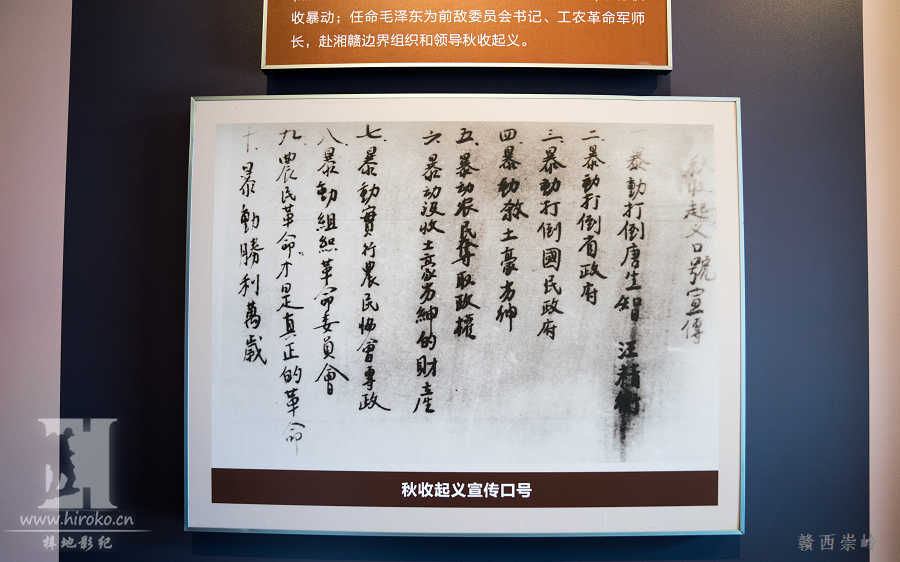 收暴动；任命毛泽东为前敌委员会书记、工农革命军师
长，赴湘赣边界组织和领导秋收起义。
秋收起义口號宣傳
一 暴動打倒唐生智 汪精衛
二 暴動打倒省政府
三 暴動打倒國民政府
四 暴動殺土豪劣紳
五 暴动农民奪取政權
六 暴动没收土豪劣紳的財産
七 暴動實行農民協會專政
八 暴動組織革命委員會
九 農民革命才是真正的革命
十 暴動勝利萬歲
秋收起义宣传口号
H
www.hiroko.cn
择地影纪
赣西崇岭